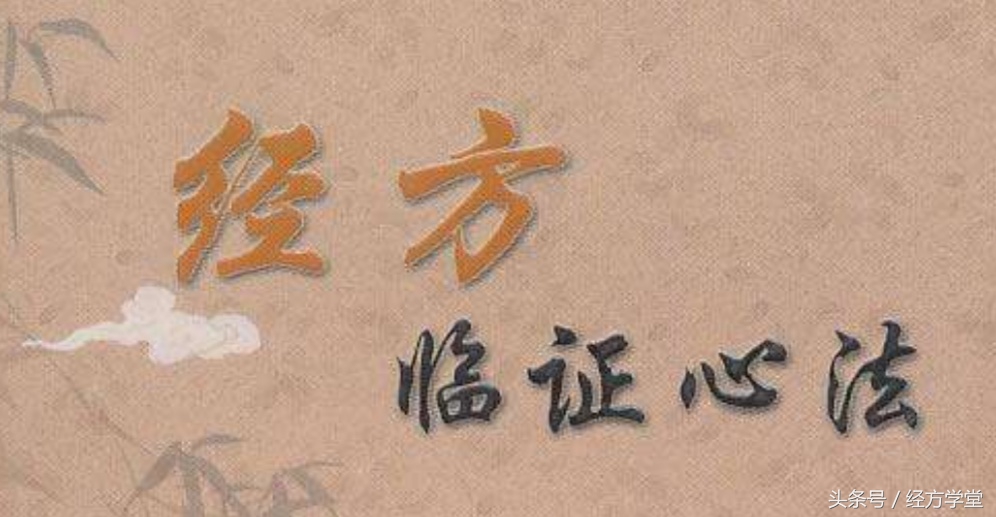 经方
临证心法
头条号 / 经方学堂